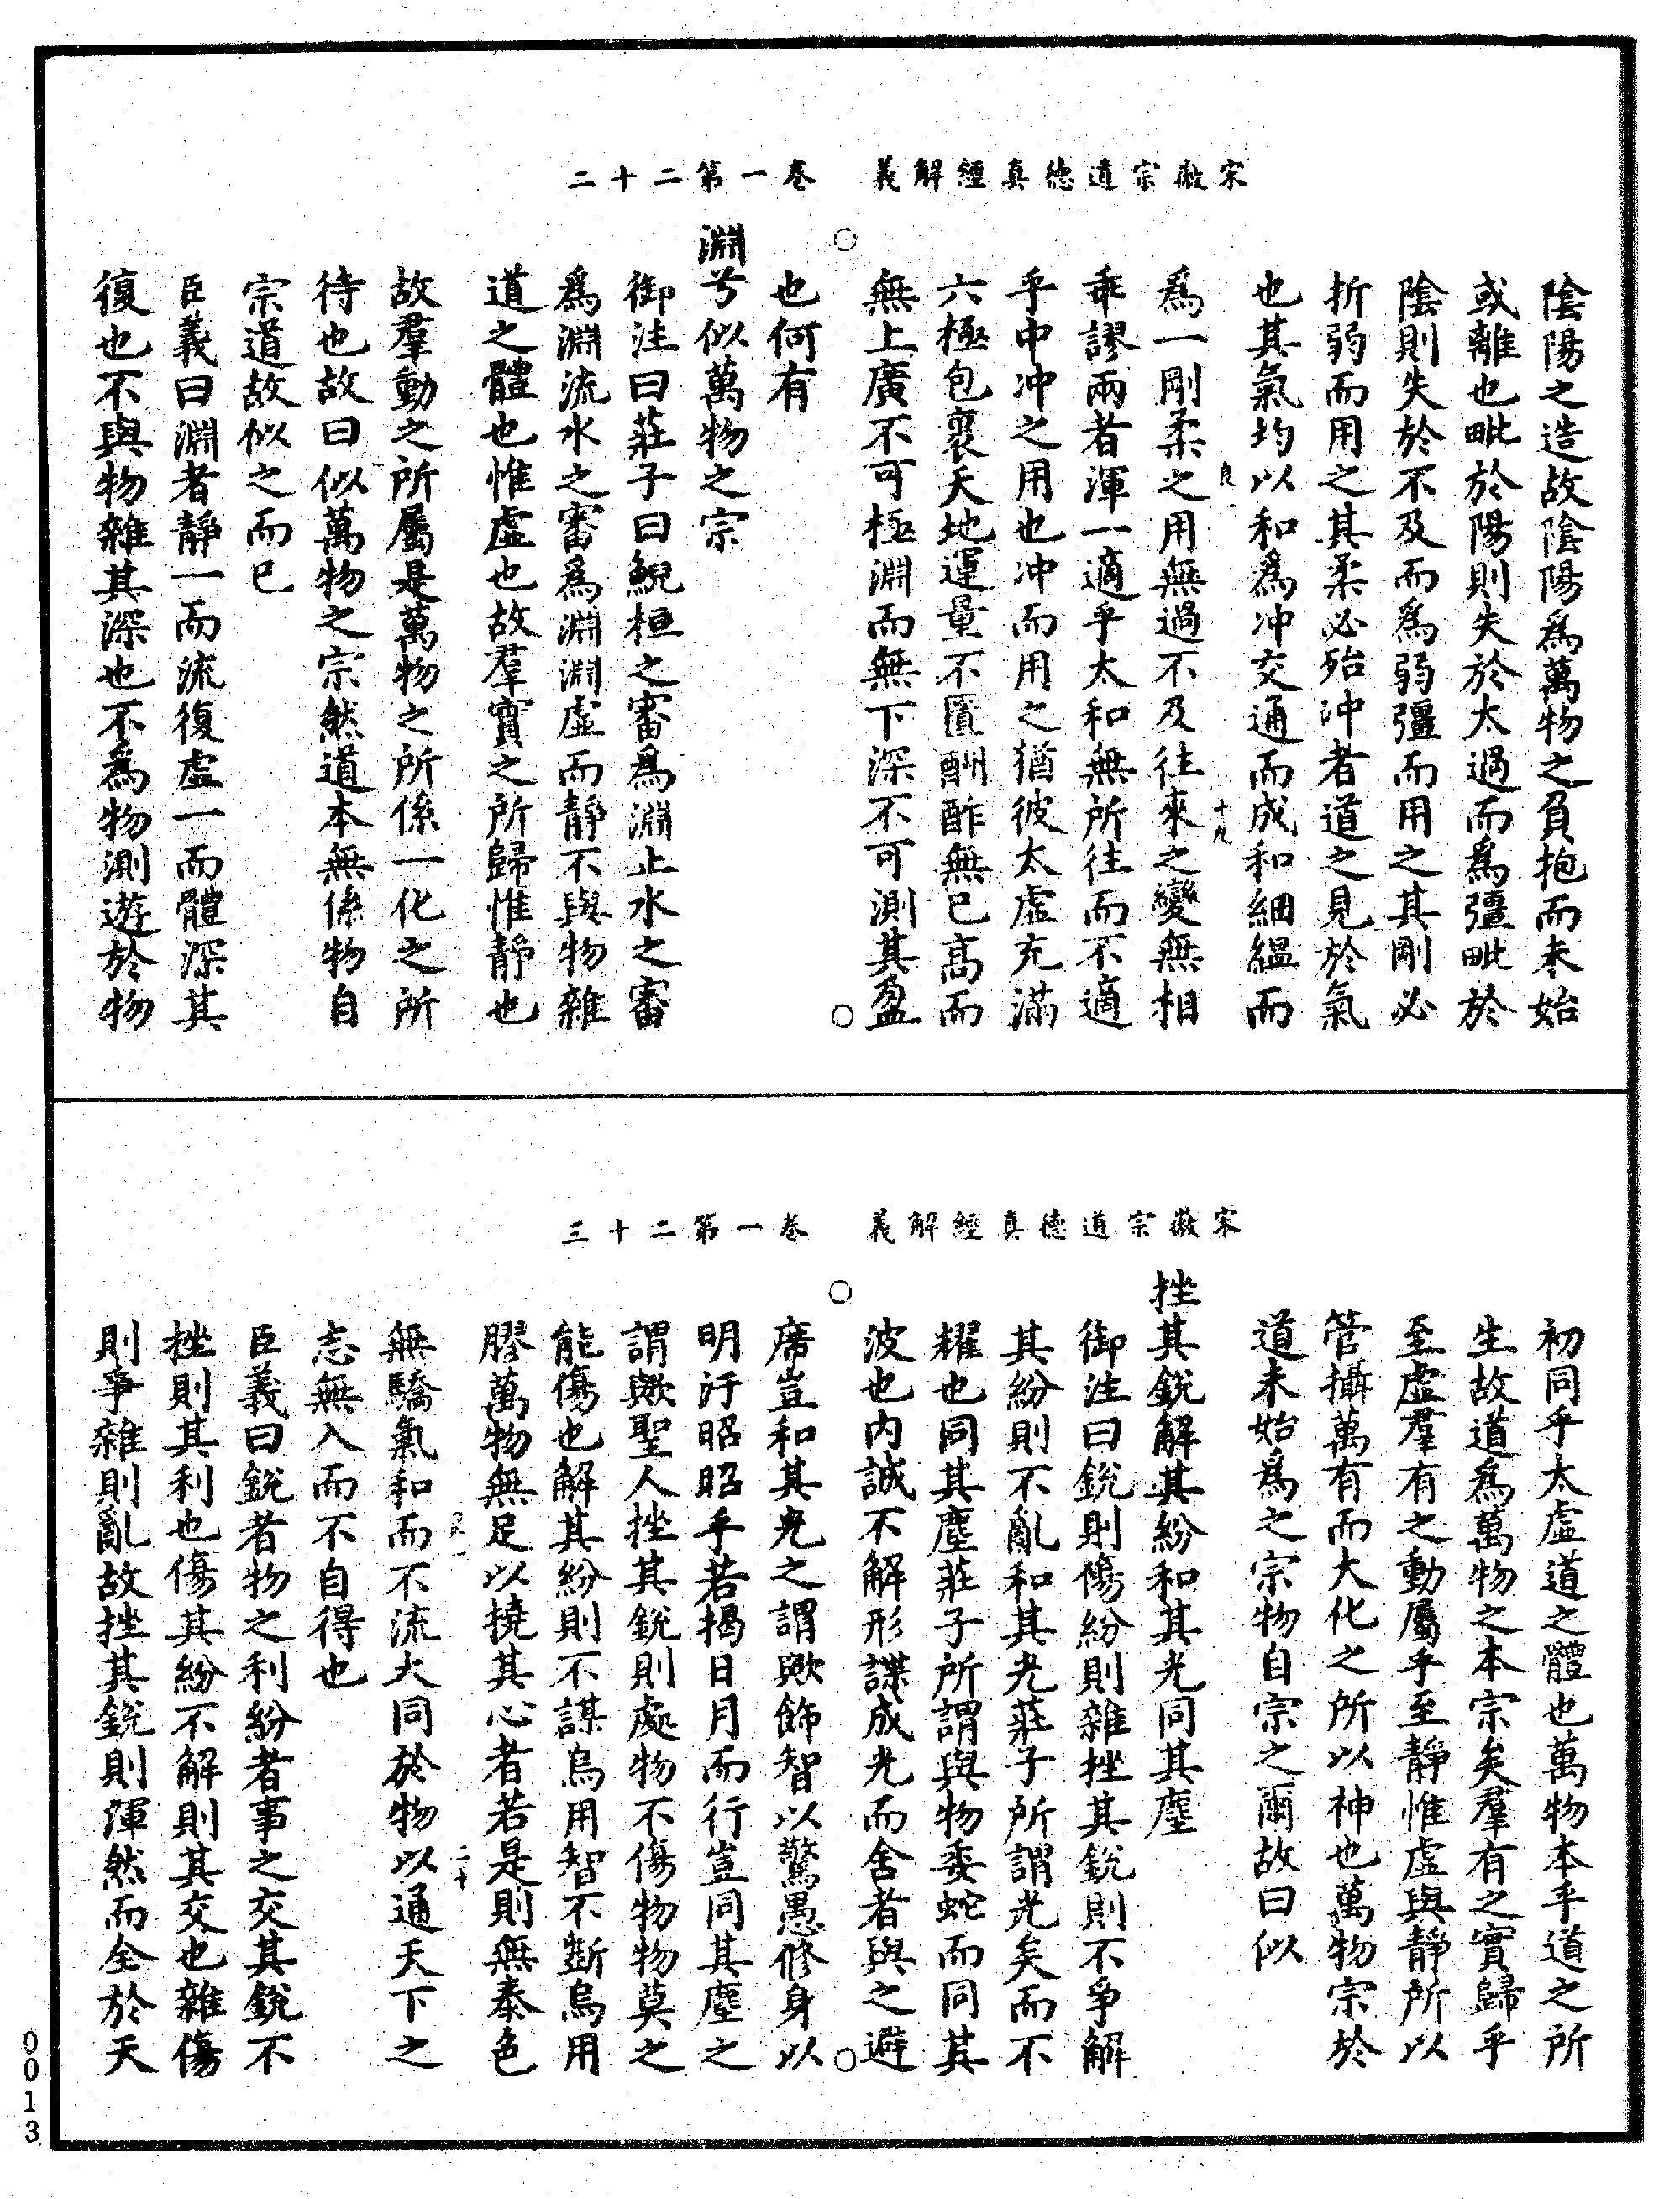 宋徽宗道德真經解義　卷一第二十二
陰陽之造故陰陽為萬物之負抱而未始
或離也毗於陽則失於太過而為彊毗於
陰則失於不及而為弱彊而用之其剛必
折弱而用之其柔必殆沖者道之見於氣
也其氣均以和為沖交通而成和絪縕而
良一　十九
為一剛柔之用無過不及往來之變無相
乖謬兩者渾一適乎太和無所往而不適
乎中沖之用也沖而用之猶彼太虛充滿
六極包裹天地運量不匱酬酢無已高而
無上廣不可極淵而無下深不可測其盈
也何有
淵兮似萬物之宗
御注曰莊子曰鯢桓之審為淵止水之審
為淵流水之審為淵淵虛而靜不與物雜
道之體也惟虛也故羣實之所歸惟靜也
故羣動之所屬是萬物之所係一化之所
待也故曰似萬物之宗然道本無係物自
宗道故似之而已
臣義曰淵者靜一而流復虛一而體深其
復也不與物雜其深也不為物測遊於物
宋徽宗道德真經解義　卷一第二十三
初同乎太虛道之體也萬物本乎道之所
生故道為萬物之本宗矣羣有之實歸乎
至虛羣有之動屬乎至靜惟虛與靜所以
管攝萬有而大化之所以神也萬物宗於
道未始為之宗物自宗之爾故曰似
挫其銳解其紛和其光同其塵
御注曰銳則傷紛則雜挫其銳則不爭解
其紛則不亂和其光莊子所謂光矣而不
耀也同其塵莊子所謂與物委蛇而同其
波也內誠不解形諜成光而舍者與之避
席豈和其光之謂歟飾智以驚愚修身以
明汙昭昭乎若揭日月而行豈同其塵之
謂歟聖人挫其銳則處物不傷物物莫之
能傷也解其紛則不謀烏用智不斲烏用
膠萬物無足以撓其心者若是則無泰色
良一　二十
無驕氣和而不流大同於物以通天下之
志無入而不自得也
臣義曰銳者物之利紛者事之交其銳不
挫則其利也傷其紛不解則其交也雜傷
則爭雜則亂故挫其銳則渾然而全於天
0013